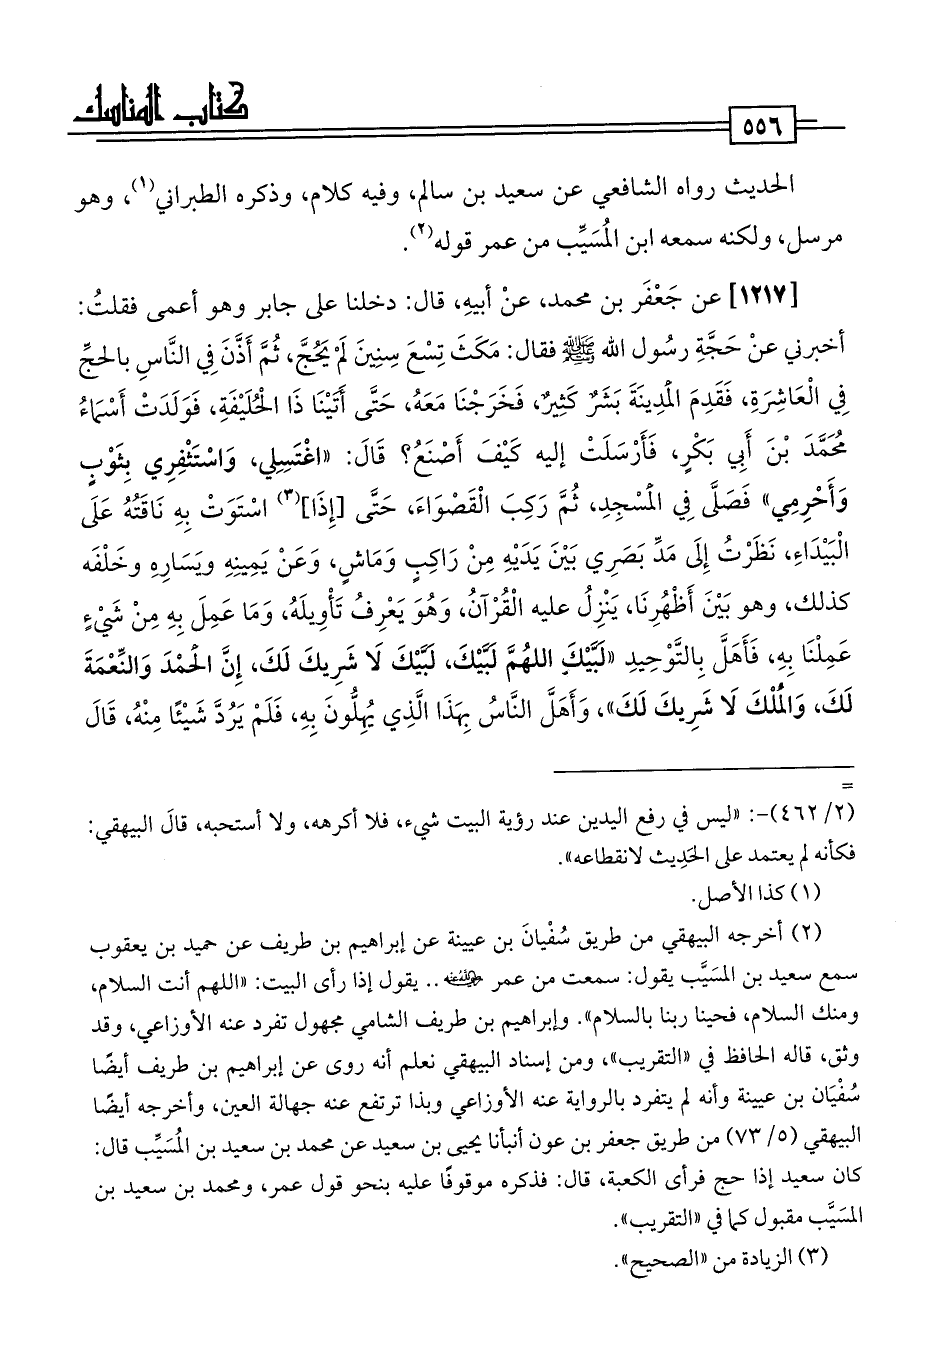 كتاب المناسك
٥٥٦
الحديث رواه الشافعي عن سعيد بن سالم، وفيه كلام، وذكره الطبراني(١)، وهو
مرسل، ولكنه سمعه ابن المُسَيِّب من عمر قوله(٢).
[١٢١٧] عن جَعْفَر بن محمد، عنْ أبيهِ، قال: دخلنا على جابر وهو أعمى فقلتُ:
أخبرني عنْ حَجَّةِ رسُول الله ﷺ فقال: مَكَثَ تِسْعَ سِنِينَ لَمْ يَحُجَّ، ثُمَّ أَذَّنَ فِي النَّاسِ بالحجِّ
فِي الْعَاشِرَةِ، فَقَدِمَ الْمدِينَةَ بَشَرٌ كَثِيرٌ، فَخَرَجْنَا مَعَهُ، حَتَّى أَتَيْنَا ذَا الْحُلَيْفَةِ، فَوَلَدَتْ أَسْمَاءُ
مُحَمَّدَ بْنَ أَبِي بَكْرٍ، فَأَرْسَلَتْ إليه كَيْفَ أَصْنَعُ؟ قَالَ: «اغْتَسِلِي، وَاسْتَثْفِرِي بِثَوْبٍ
وَأَحْرِمِي» فَصَلَّى فِي الْمسْجِدِ، ثُمَّ رَكِبَ الْقَصْوَاءَ، حَتَّى [إِذَا](٣) اسْتَوَتْ بِهِ نَاقَتُهُ عَلَى
الْبَيْدَاءِ، نَظَرْتُ إِلَى مَدِّ بَصَرِي بَيْنَ يَدَيْهِ مِنْ رَاكِبٍ وَمَاشٍ، وَعَنْ يَمِينِهِ ويَسَارِهِ وخَلْفَه
كذلك، وهو بَيْنَ أَظْهُرِنَا، يَنْزِلُ عليه الْقُرْآنُ، وَهُوَ يَعْرِفُ تَأْوِيلَهُ، وَمَا عَمِلَ بِهِ مِنْ شَيْءٍ
عَمِلْنَا بِهِ، فَأَهَلَّ بِالتَّوْحِيدِ «لَبَّيْكَ اللهُمَّ لَبَّيْكَ، لَبَّيْكَ لَا شَرِيكَ لَكَ، إِنَّ الْحَمْدَ وَالنِّعْمَةَ
لَكَ، وَالْمُلْكَ لَا شَرِيكَ لَكَ»، وَأَهَلَّ النَّاسُ بِهَذَا الَّذِي يُهِلُّونَ بِهِ، فَلَمْ يَرُدَّ شَيْئًا مِنْهُ، قَالَ
=
(٢/ ٤٦٢)-: «ليس في رفع اليدين عند رؤية البيت شيء، فلا أكرهه، ولا أستحبه، قالَ البيهقي:
فكأنه لم يعتمد على الحَدِيث لانقطاعه».
(١) كذا الأصل.
(٢) أخرجه البيهقي من طريق سُفْيانَ بن عيينة عن إبراهيم بن طريف عن حميد بن يعقوب
سمع سعيد بن المسَيَّب يقول: سمعت من عمر رضي الله عنه .. يقول إذا رأى البيت: «اللهم أنت السلام،
ومنك السلام، فحينا ربنا بالسلام». وإبراهيم بن طريف الشامي مجهول تفرد عنه الأوزاعي، وقد
وثق، قاله الحافظ في «التقريب»، ومن إسناد البيهقي نعلم أنه روى عن إبراهيم بن طريف أيضًا
سُفْيَان بن عيينة وأنه لم يتفرد بالرواية عنه الأوزاعي وبذا ترتفع عنه جهالة العين، وأخرجه أيضًا
البيهقي (٥/ ٧٣) من طريق جعفر بن عون أنبأنا يحيى بن سعيد عن محمد بن سعيد بن المُسَيِّب قال:
كان سعيد إذا حج فرأى الكعبة، قال: فذكره موقوفًا عليه بنحو قول عمر، ومحمد بن سعيد بن
المسَيَّب مقبول كما في «التقريب».
(٣) الزيادة من «الصحيح».